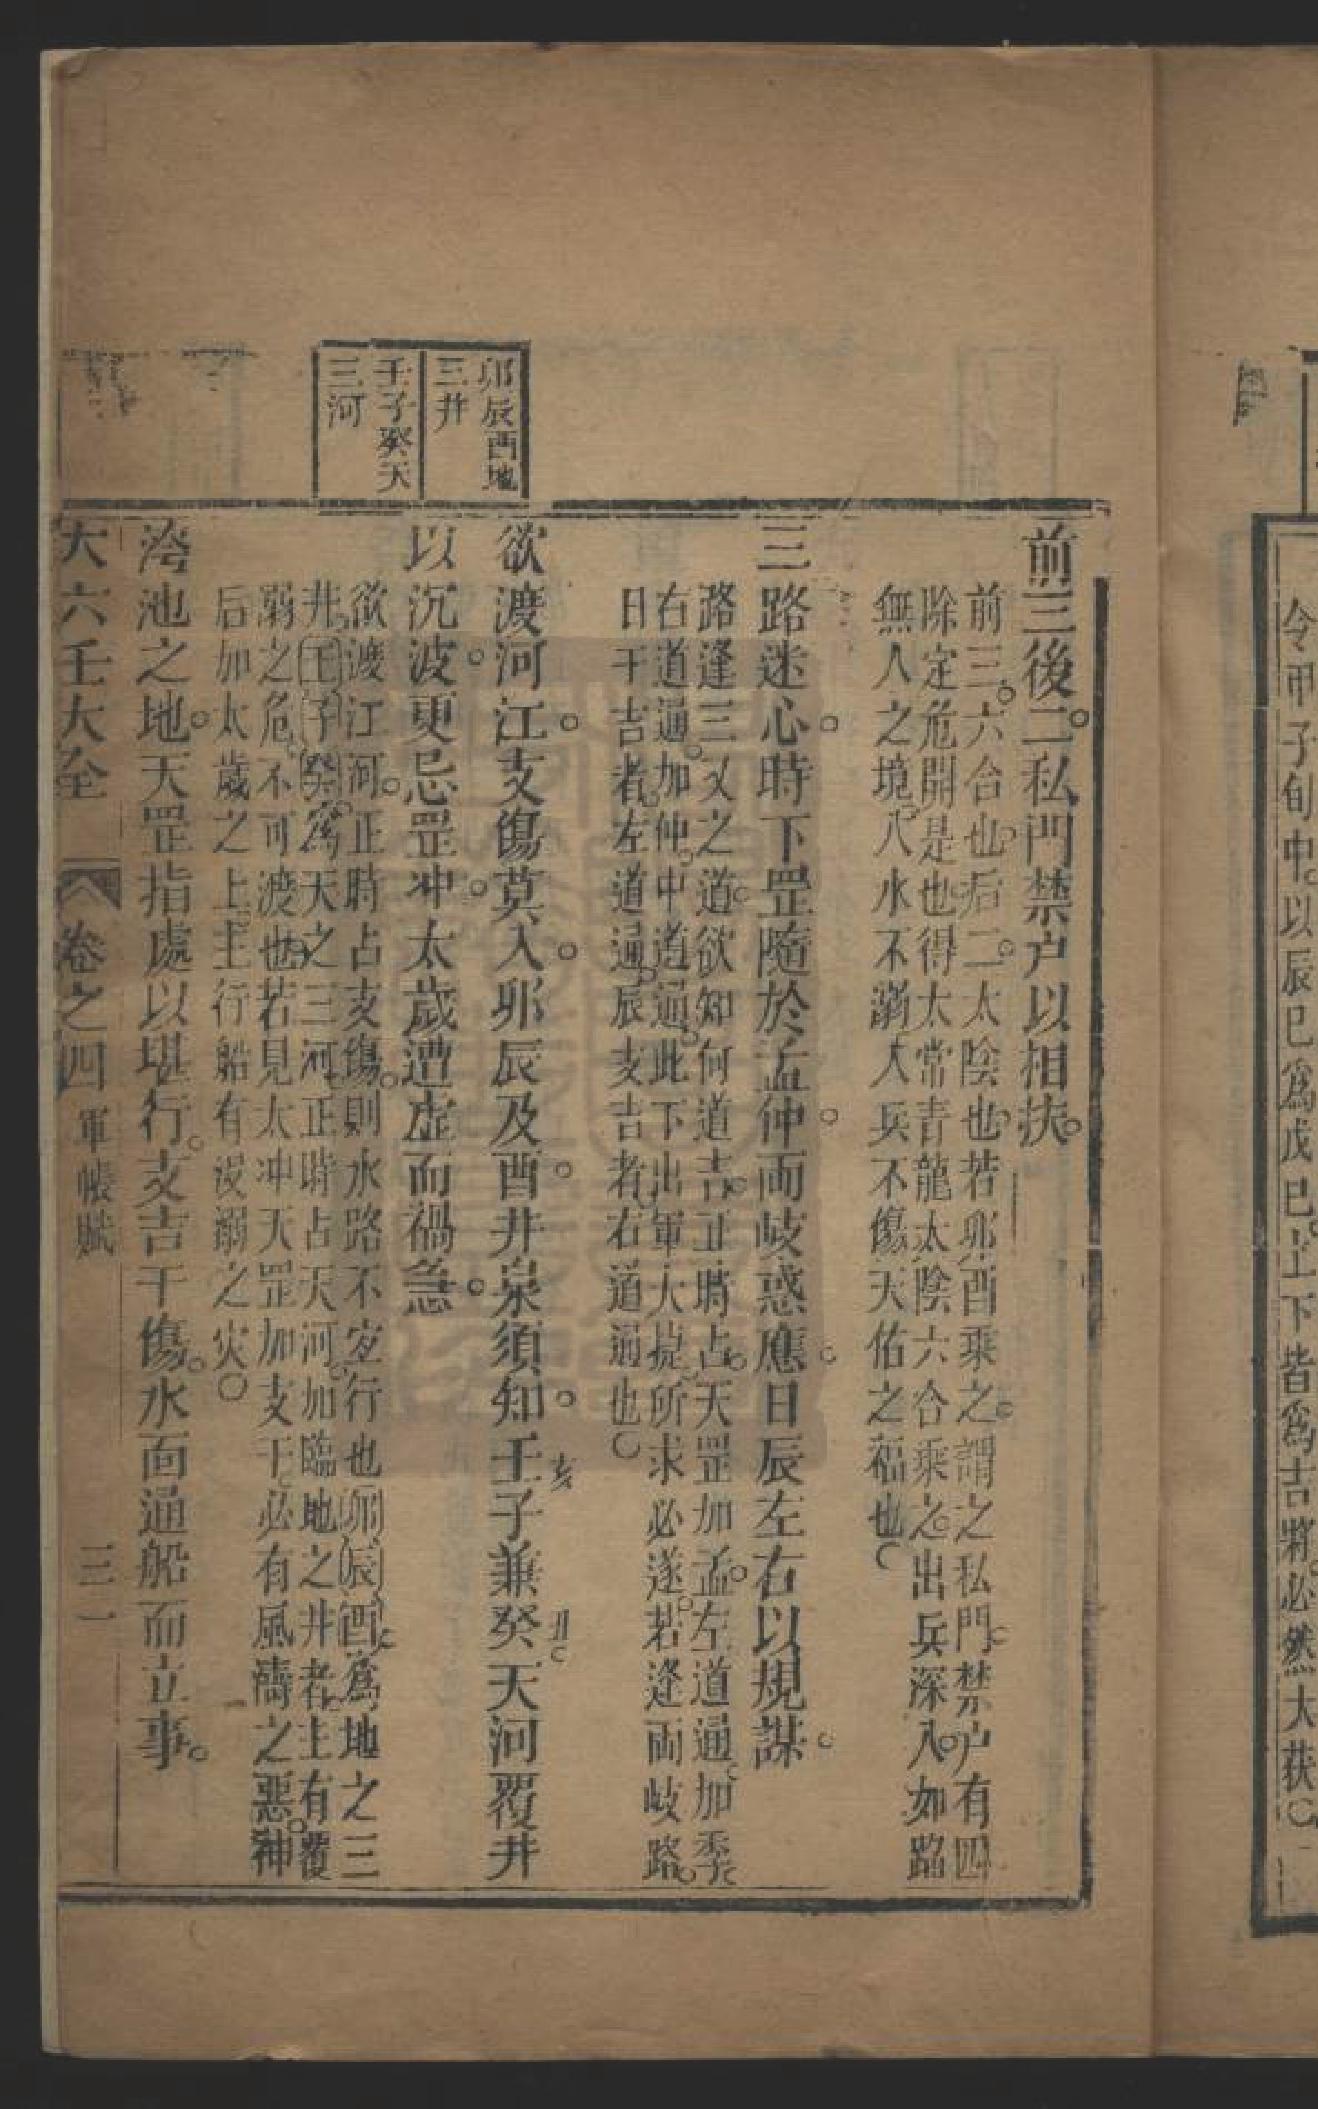 令甲子旬中以辰巳為戊巳上下皆為吉將必然大获
前三後二私門禁户以相扶
前三六合也后二太陰也若卯酉乘之謂之私門禁户有四
除定危開是也得太常青龍太陰六合乘之出兵深入如蹈
無人之境入水不溺大兵不傷天佑之福也
三路迷心時下罡隨於孟仲兩岐惑應日辰左右以規謀
路逢三叉之道欲知何道吉正時占天罡加孟左道通加季
右道通加仲中道通此下出軍大捷所求必遂若逢兩岐路
日干吉者左道通辰支吉者右道通也
卯辰酉地
三井
壬子癸天
三河
欲渡河江支傷莫入卯辰及酉井泉須知壬亥子兼癸丑天河覆井
以沉波更忌罡冲太歲遭虛而禍急
欲渡江河正時占支傷則水路不宜行也卯辰酉為地之三
井壬子癸為天之三河正時占天河加臨地之井者主有覆
溺之危不可渡也若見太冲天罡加支干必有風濤之惡神
后加太歲之上主行船有没溺之灾
湾池之地天罡指處以堪行支吉干傷水面通船而立事
大六壬大全 卷之四 軍帳賦 三一